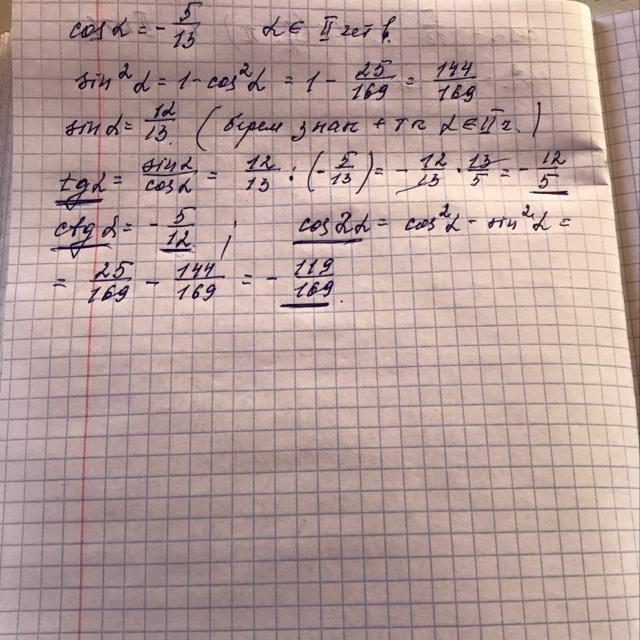 cosα = - 5/13 α∈ II четв.
sin²α = 1 - cos²α = 1 - 25/169 = 144/169
sinα = 12/13. (берем знак + тк α∈II ч.)
tgα = sinα/cosα = 12/13 : (- 5/13) = - 12/13 · 13/5 = - 12/5
ctgα = - 5/12 ; cos2α = cos²α - sin²α =
= 25/169 - 144/169 = - 119/169.